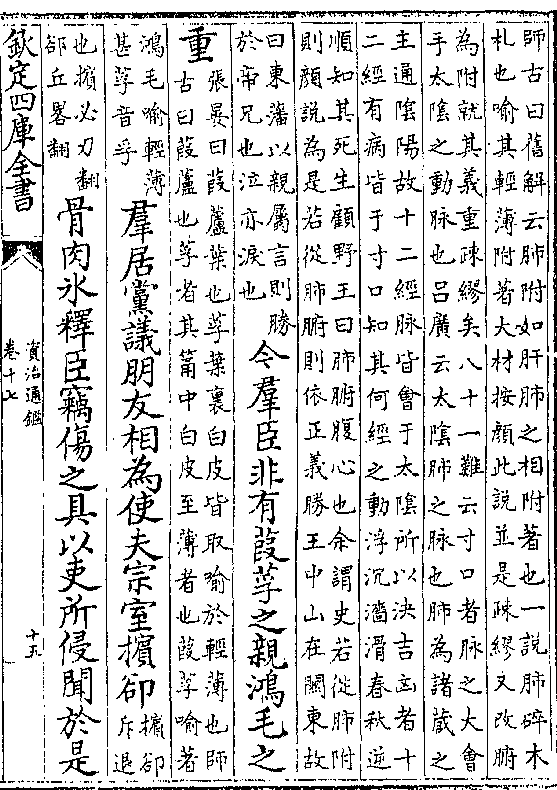 師古曰舊解云肺附如肝肺之相附著也一説肺碎木
札也喻其輕薄附著大材按顔此説並是疎繆又改腑
為附就其義重疎繆矣八十一難云寸口者脉之大會
手太陰之動脉也吕廣云太陰肺之脉也肺為諸蔵之
主通陰陽故十二經脉皆會于太陰所以決吉凶者十
二經有病皆于寸口知其何經之動浮沉濇滑春秋逆
順知其死生顧野王曰肺腑腹心也余謂史若從肺附
則顔説為是若從肺腑則依正義勝王中山在關東故
曰東藩以親屬言則勝
於帝兄也泣亦淚也
今羣臣非有葭莩之親鴻毛之
重
張晏曰葭蘆葉也莩葉裏白皮皆取喻於輕薄也師
古曰葭蘆也莩者其筩中白皮至薄者也葭莩喻著
鴻毛喻輕薄
甚莩音孚
羣居黨議朋友相為使夫宗室擯卻
擯卻
斥退
也擯必刃翻
郤丘畧翻
骨肉冰釋臣竊傷之具以吏所侵聞於是
欽定四庫全書
資治通鑑
卷十七
十五